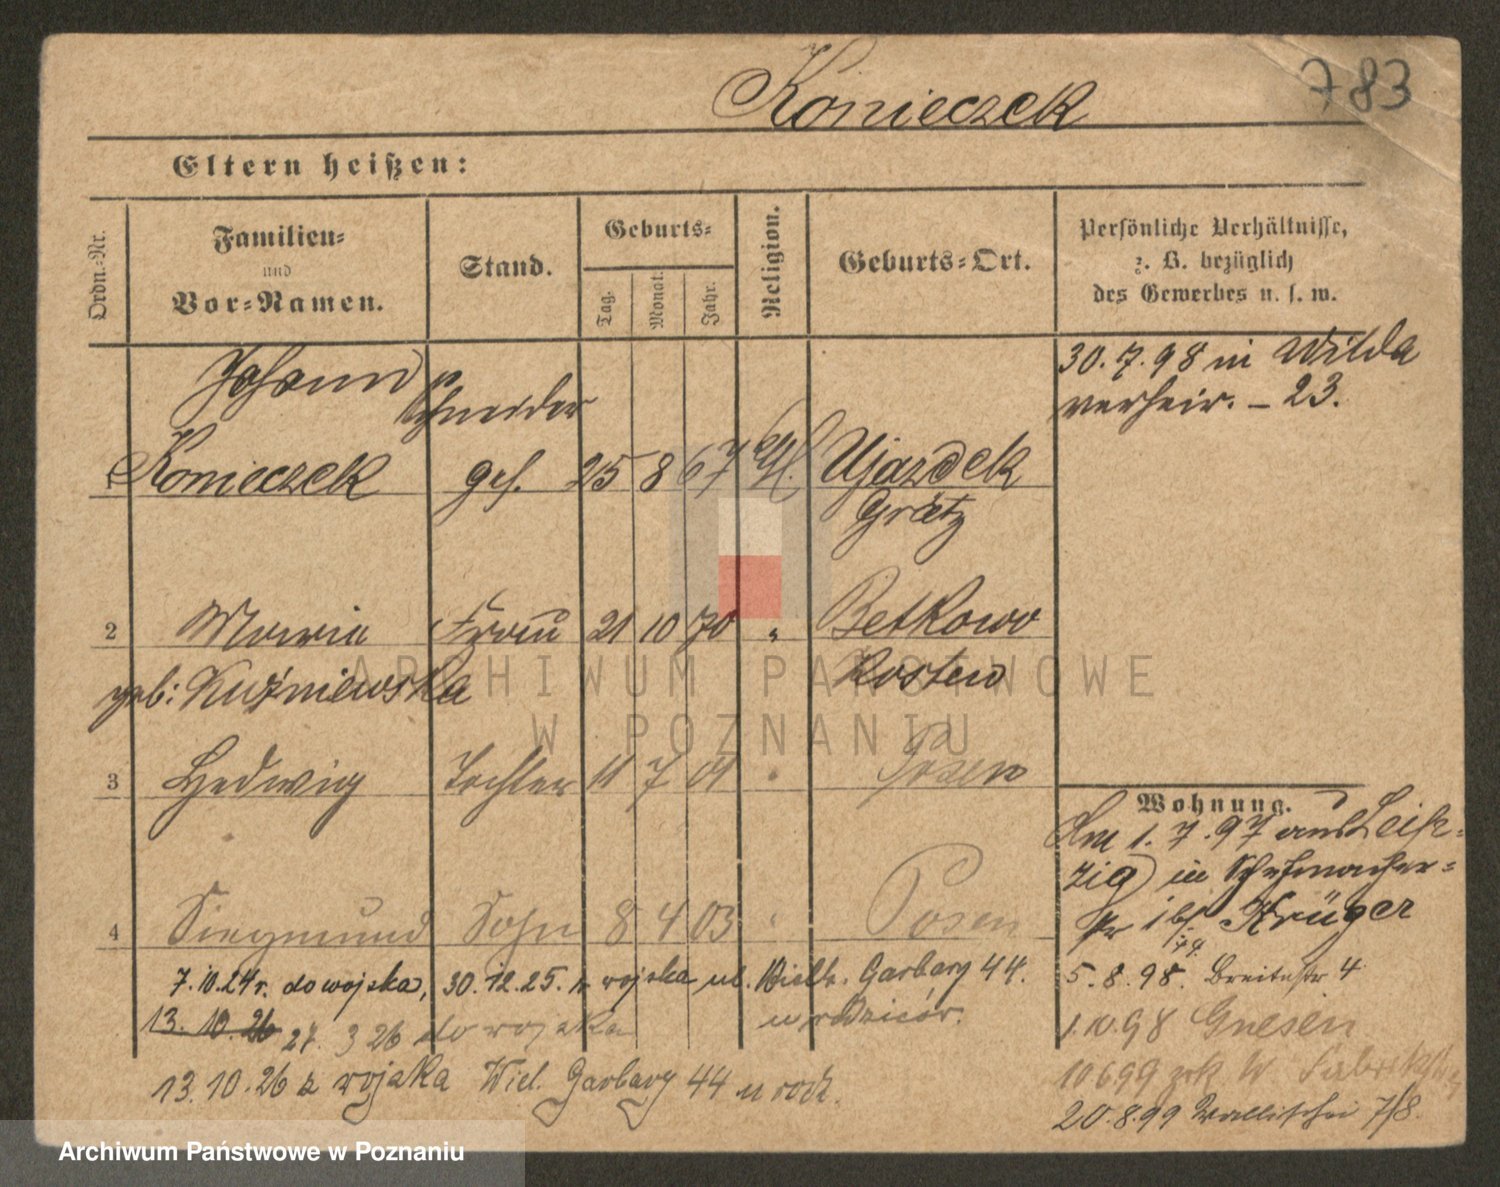 Konieczek
783
Eltern heißen:
Ordn.-Nr.
Familien-
und
Vor-Namen.
Stand.
Geburts-
Tag.
Monat.
Jahr.
Religion.
Geburts-Ort.
Persönliche Verhältnisse,
z. B. bezüglich
des Gewerbes u. s. w.
Johann
Schneider
30.7.98 in Wilda
verheir. – 23.
1 Konieczek ges. 25 8 67 kth. Ujazdek
Grätz
2 Maria Frau 21 10 70 " Betkowo
geb: Kuźniewska Kosten
3 Hedwig Tochter 11 7 01 " Posen
4 Siegmund Sohn 8 4 03 " Posen
7.10.24 r. do wojska, 30.12.25. z wojska ul. Wielk. Garbary 44.
13.10.26 27. 3 26 do wojska u rodziców.
13.10.26 z wojska Wiel. Garbary 44 u rodz.
Wohnung.
Am 1.7.97 aus Leip-
zig in Schuhmacher-
str bei Krüger
5.8.98. Breitestr 4
1.10.98 Gnesen
10 6 99 zrk W
20.8.99 Wallischei 7/8.
ARCHIWUM PAŃSTWOWE
W POZNANIU
Archiwum Państwowe w Poznaniu